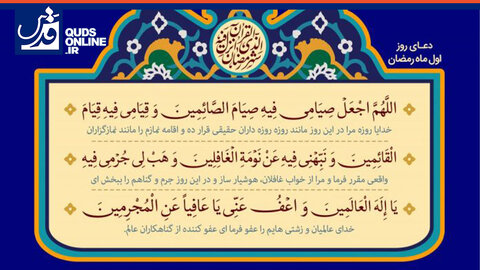 قدس
QUDS
ONLINE
.IR
دعـای روز
اول ماه رمضان
شهر رمضان الذی انزل فیه القرآن
اللَّهُمَّ اجْعَلْ صِيَامِي فِيهِ صِيَامَ الصَّائِمِينَ وَ قِيَامِي فِيهِ قِيَامَ
خدایا روزه مرا در این روز مانند روزه روزه داران حقیقی قرار ده و اقامه نمازم را مانند نمازگزاران
الْقَائِمِينَ وَ نَبِّهْنِي فِيهِ عَنْ نَوْمَةِ الْغَافِلِينَ وَ هَبْ لِي جُرْمِي فِيهِ
واقعی مقرر فرما و مرا از خواب غافلان، هوشیار ساز و در این روز جرم و گناهم را ببخش ای
يَا إِلَهَ الْعَالَمِينَ وَ اعْفُ عَنِّي يَا عَافِياً عَنِ الْمُجْرِمِينَ
خدای عالمیان و زشتی هایم را عفو فرما ای عفو کننده از گناهکاران عالم.